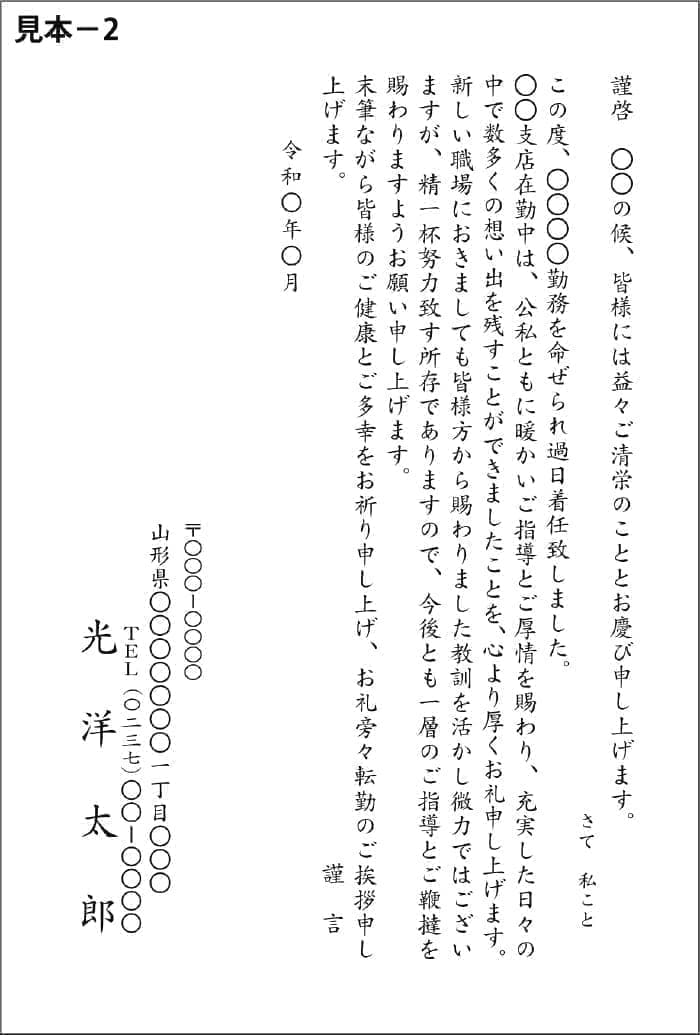 見本－2
謹啓　〇〇の候、皆様には益々ご清栄のこととお慶び申し上げます。
さて　私こと
この度、〇〇〇〇勤務を命ぜられ過日着任致しました。
〇〇支店在勤中は、公私ともに暖かいご指導とご厚情を賜わり、充実した日々の
中で数多くの想い出を残すことができましたことを、心より厚くお礼申し上げます。
新しい職場におきましても皆様方から賜わりました教訓を活かし微力ではござい
ますが、精一杯努力致す所存でありますので、今後とも一層のご指導とご鞭撻を
賜わりますようお願い申し上げます。
末筆ながら皆様のご健康とご多幸をお祈り申し上げ、お礼旁々転勤のご挨拶申し
上げます。
謹　言
令和〇年〇月
〒〇〇〇－〇〇〇〇
山形県〇〇〇〇〇〇〇一丁目〇〇〇
TEL（〇二三七）〇〇－〇〇〇〇
光　洋　太　郎